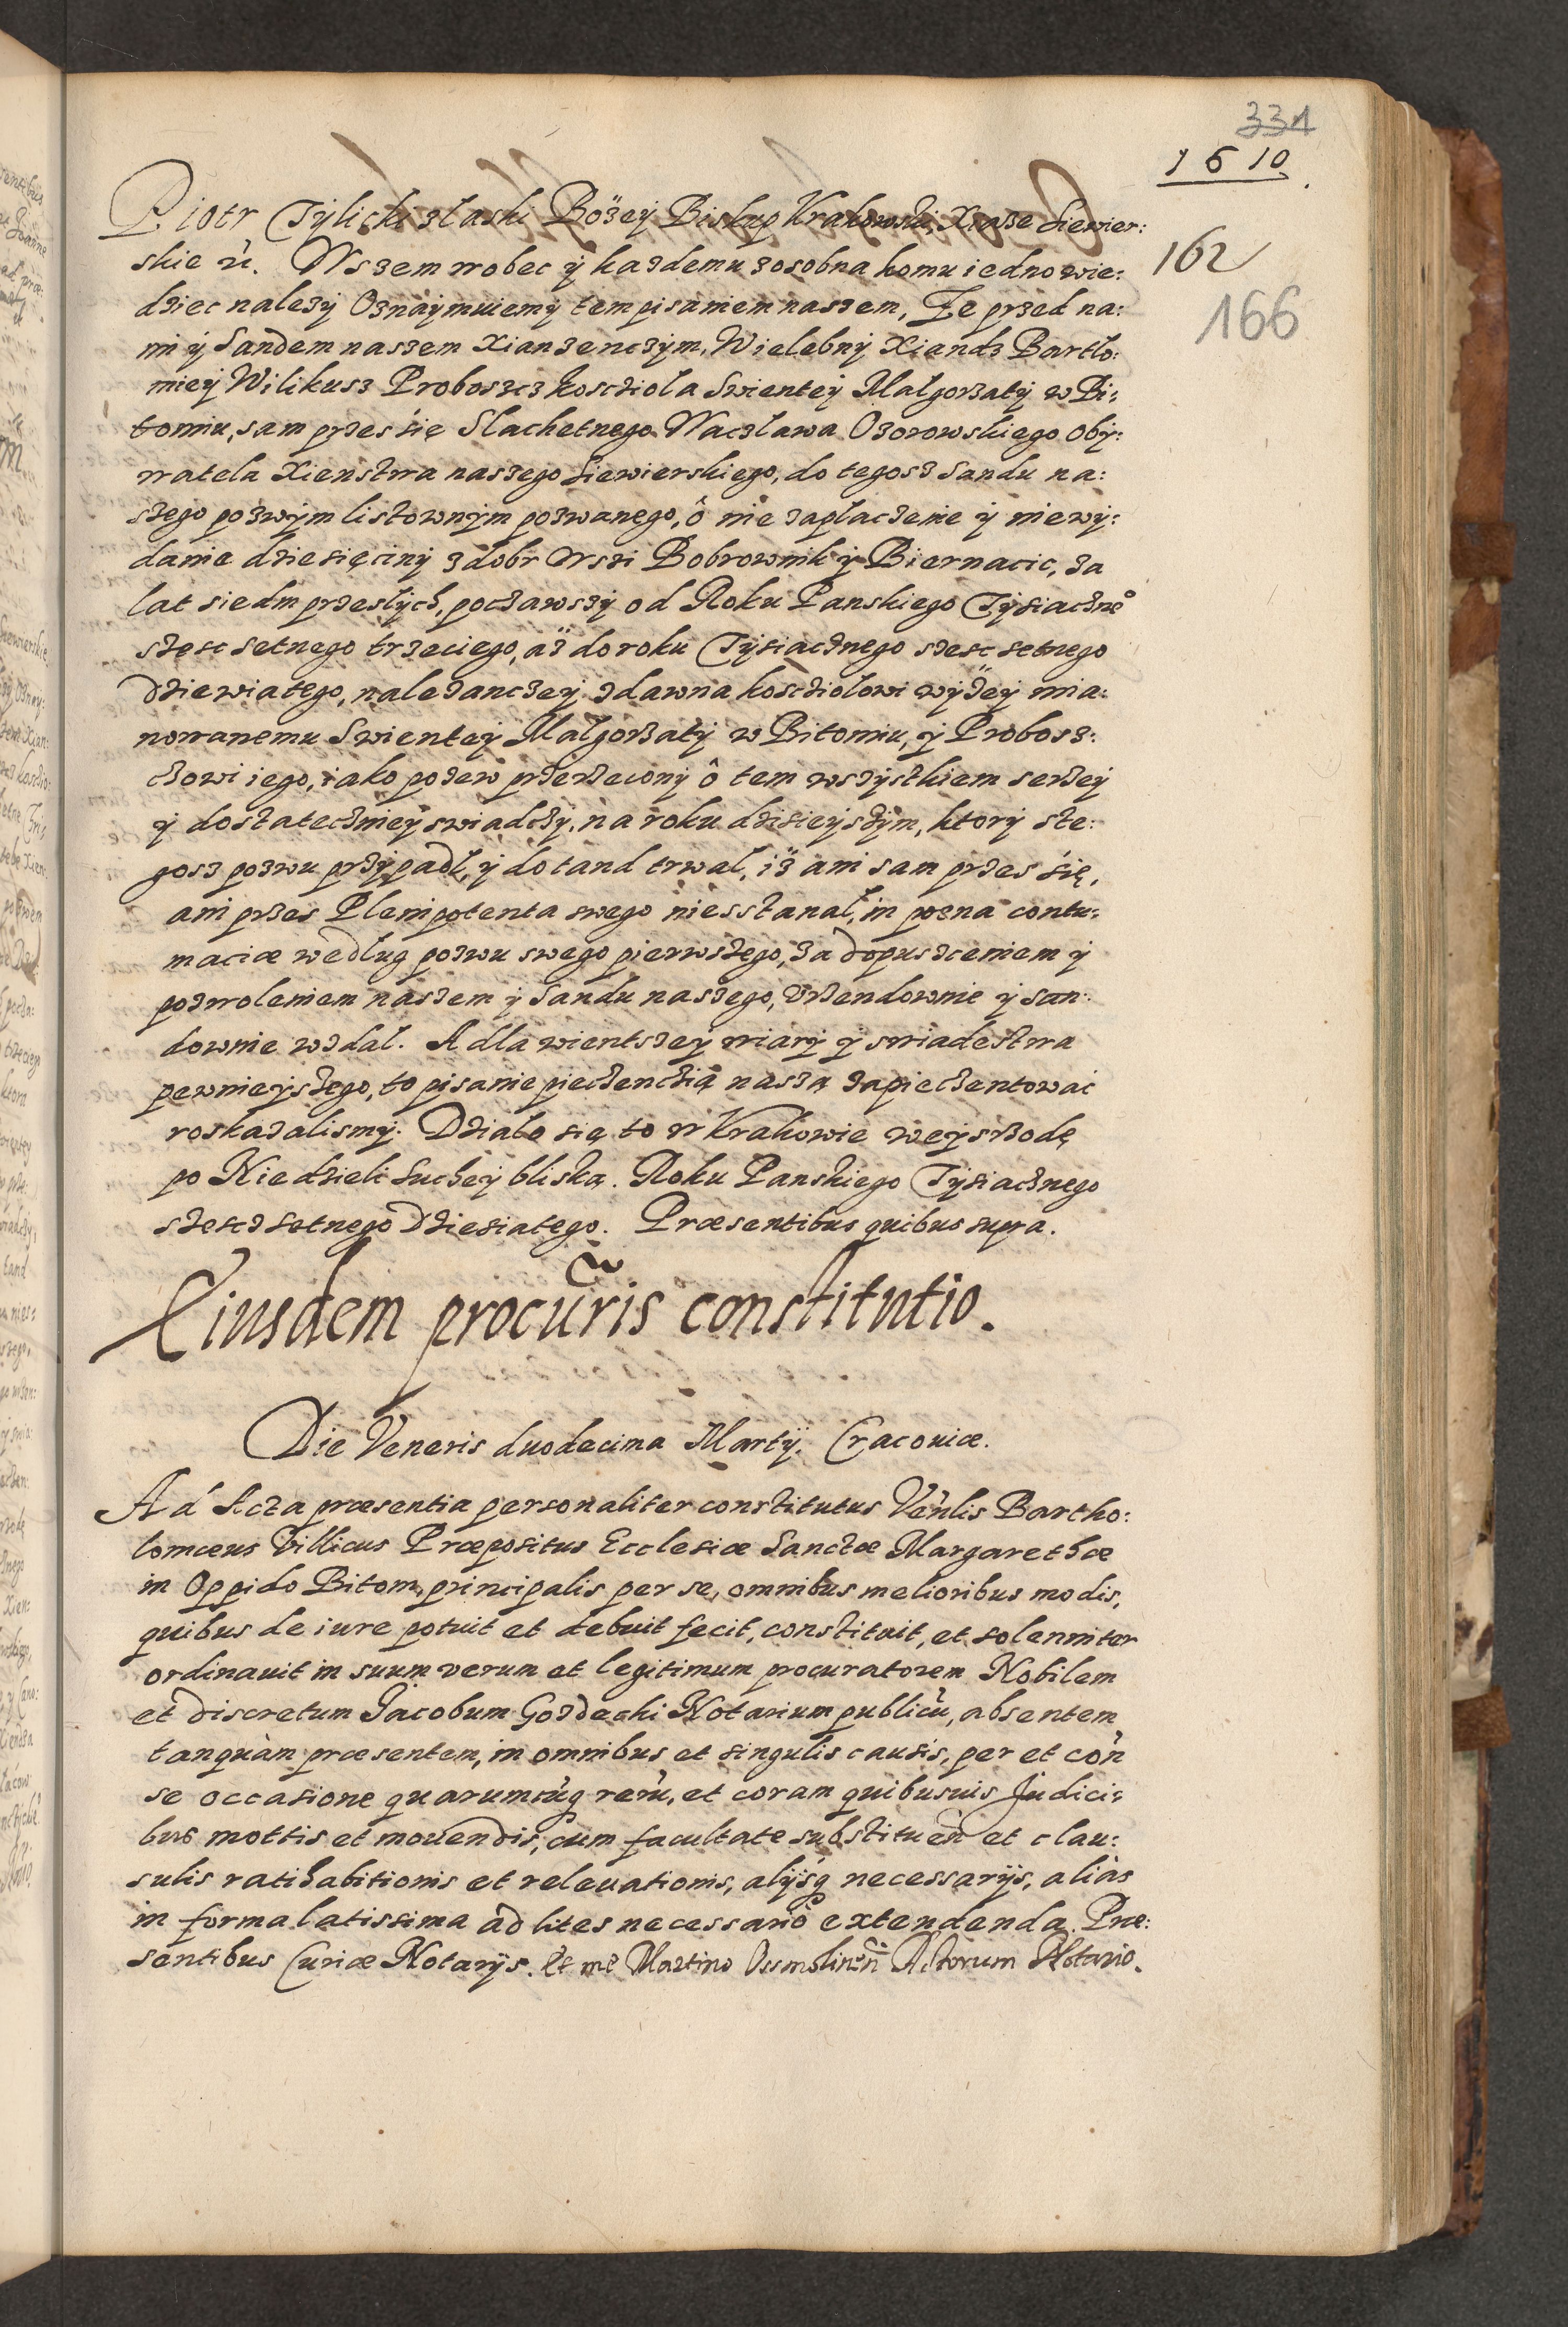 331
1610
162
166
Piotr Tylicki z laski Bożey Biskup Krakowski, Xiąże Siewier:
skie etc. Wszem wobec y kazdemu zosobna komu iedno wie:
dziec nalezy Oznaymuiemy tem pisaniem naszem, Że przed na:
mi y Sandem naszem Xianzenczym, Wielebny Xiandz Bartlo:
miey Wilikusz Proboszcz kosciola Swientey Malgorzaty w Bi:
tomiu, sam przes się Slachetnego Waczlawa Ozorowskiego Oby:
watela Xienstwa naszego Siewierskiego, do tegosz Sandu na:
szego pozwym listownym pozwanego, ô nie zaplaczenie y niewy:
danie dziesięciny z dobr Wszi Bobrownik y Biernacic, za
lat siedm przeslych, poczawszy od Roku Panskiego Tysiaczne͒
szesc setnego trzeciego, aż do roku Tysiacznego szesc setnego
Dziewiatego, nalezanczey zdawna kosciolowi wyżey mia:
nowanemu Swientey Malgorzaty w Bitomiu, y Probosz:
czowi iego, iako pozew przerzeczony ô tem wszystkiem serzey
y dostateczniey swiadczy, na roku dzisieyszym, ktory zte:
gosz pozwu przypadl, y dotand trwal, iż ani sam przes się,
ani przez Plenipotenta swego niesstanal, in poena contu:
maciae wedlug pozwu swego pierwszego, za dopuszczeniem y
pozwoleniem naszem y Sandu naszego, Urzendownie y San:
downie wzdal. A dla wientszey wiary y swiadestwa
pewnieyszego, to pisanie pieczenczią naszą zapieczentowac
roskazalismy. Dzialo się to w Krakowie weysrzodę
po Niedzieli Suchey bliską. Roku Panskiego Tysiacznego
szescz setnego Dziesiatego. Praesentibus quibus supra.
Eiusdem procuris constitutio.
Die Veneris duodecima Martij. Cracoviae.
Ad Acta praesentia personaliter constitutus Venlis Bartho:
lomaeus Villicus Praepositus Ecclesiae Sanctae Margarethae
in Oppido Bitom, principalis per se, omnibus melioribus modis,
quibus de iure potuit et debuit fecit, constituit, et solenniter
ordinauit in suum verum et legitimum procuratorem Nobilem
et Discretum Jacobum Gozdecki Notarium publicũ, absentem
tanquàm praesentem, in omnibus et singulis causis, per et con̄
se occasione quarumcũq rerũ, et coram quibusuis Judici:
bus mottis et mouendis, cum facultate substituen̄ et clau:
sulis ratihabitionis et releuationis, alijsq necessarijs, aliàs
in forma latissima ad lites necessariò extendenda. Prae:
sentibus Curiae Notarijs. Et me Martino Osmolinen̄ Actorum Notario.